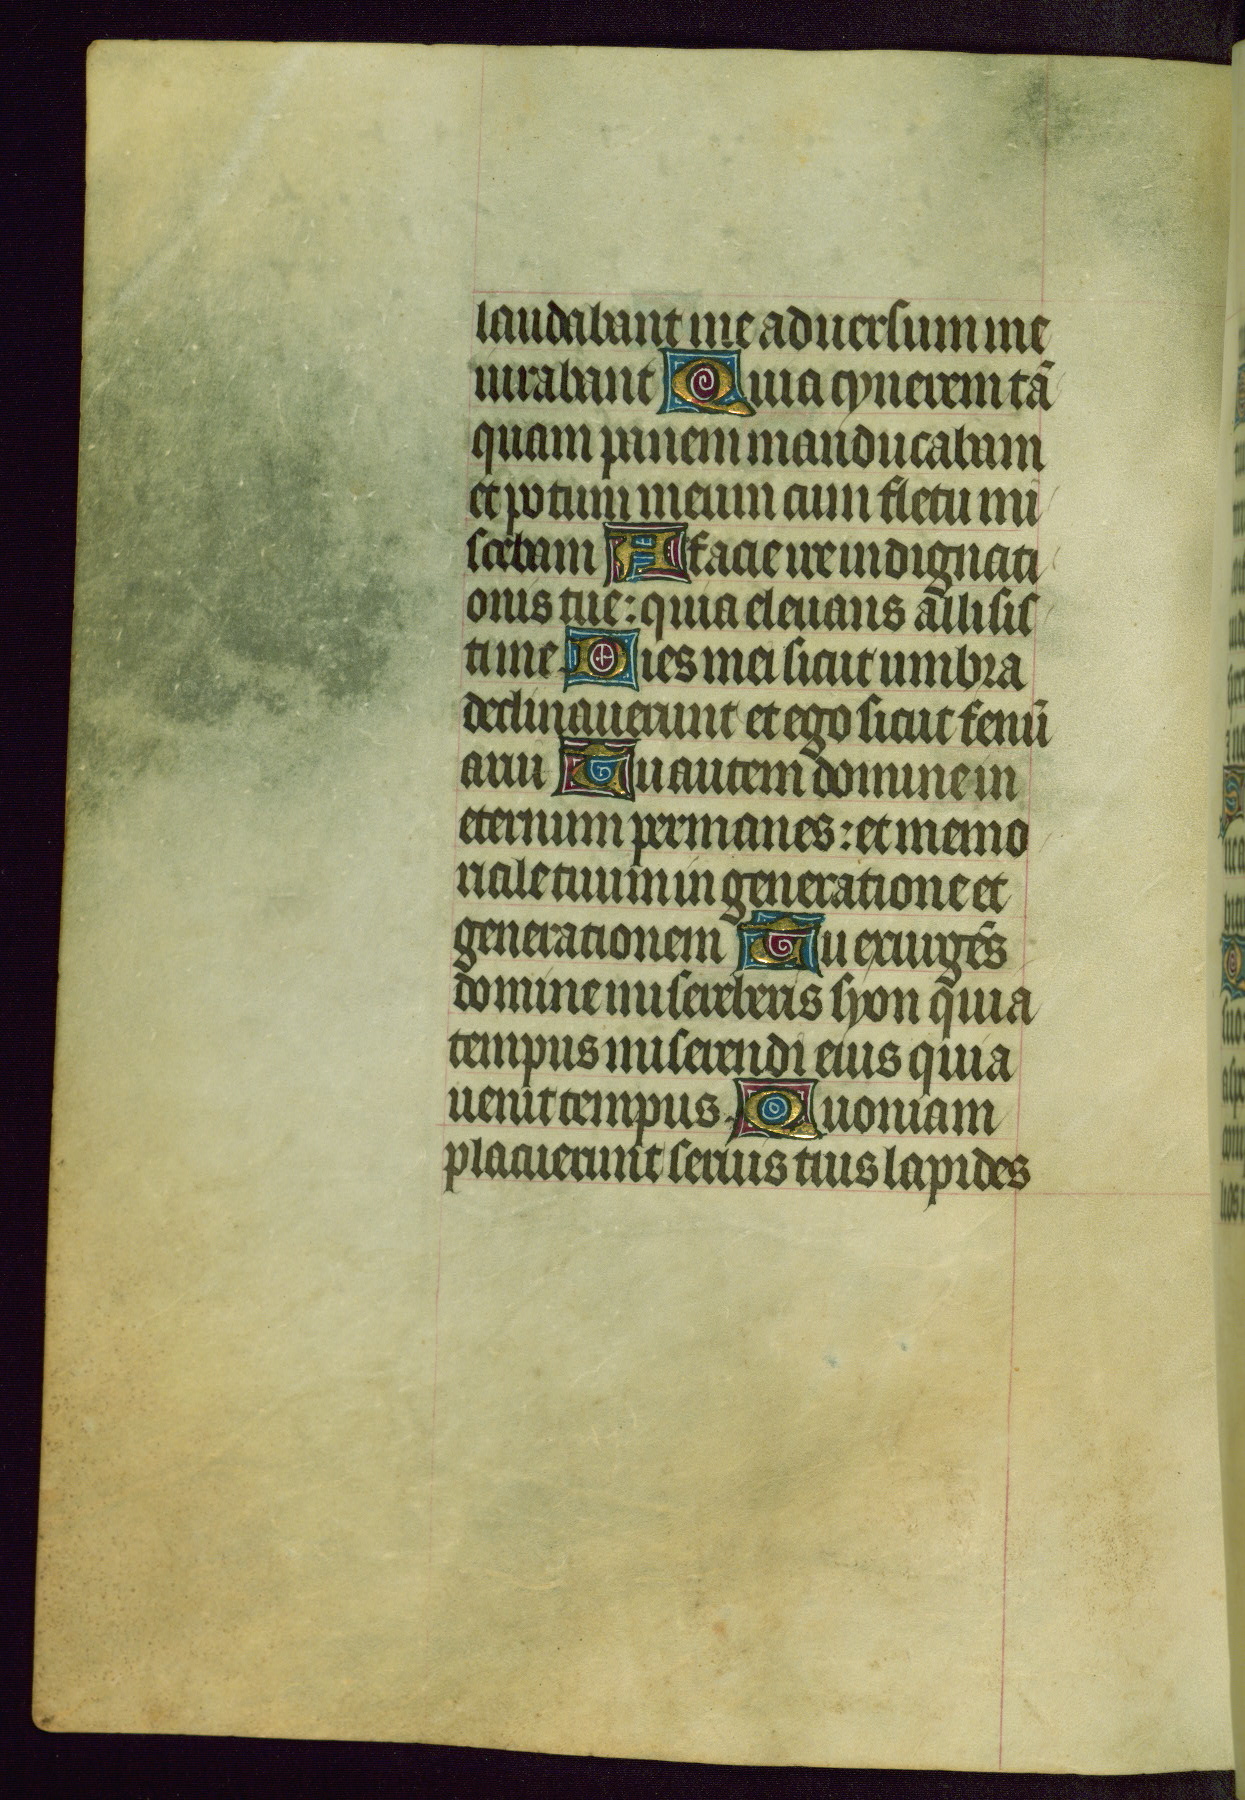 laudabant me aduersum me
iurabant Quia cynerem tā
quam panem manducabam
et potum meum cum fletu mi
scebam A facie ire indignati
onis tue : quia eleuans allisis
ti me. Dies mei sicut umbra
declinauerunt et ego sicut fenū
arui Tu autem domine in
eternum permanes : et memo
riale tuum in generatione et
generationem Tu exurgēs
domine misereberis syon quia
tempus miserendi eius quia
uenit tempus. Quoniam
placuerunt seruis tuis lapides